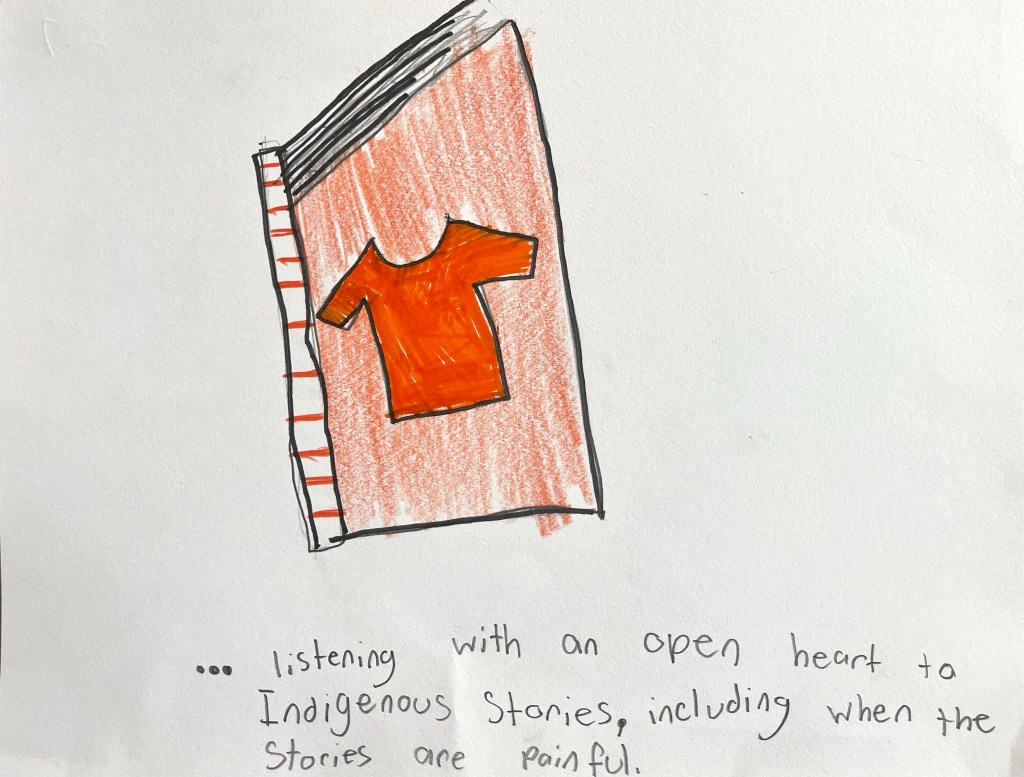 ... listening with an open heart to
Indigenous Stories, including when the
Stories are painful.